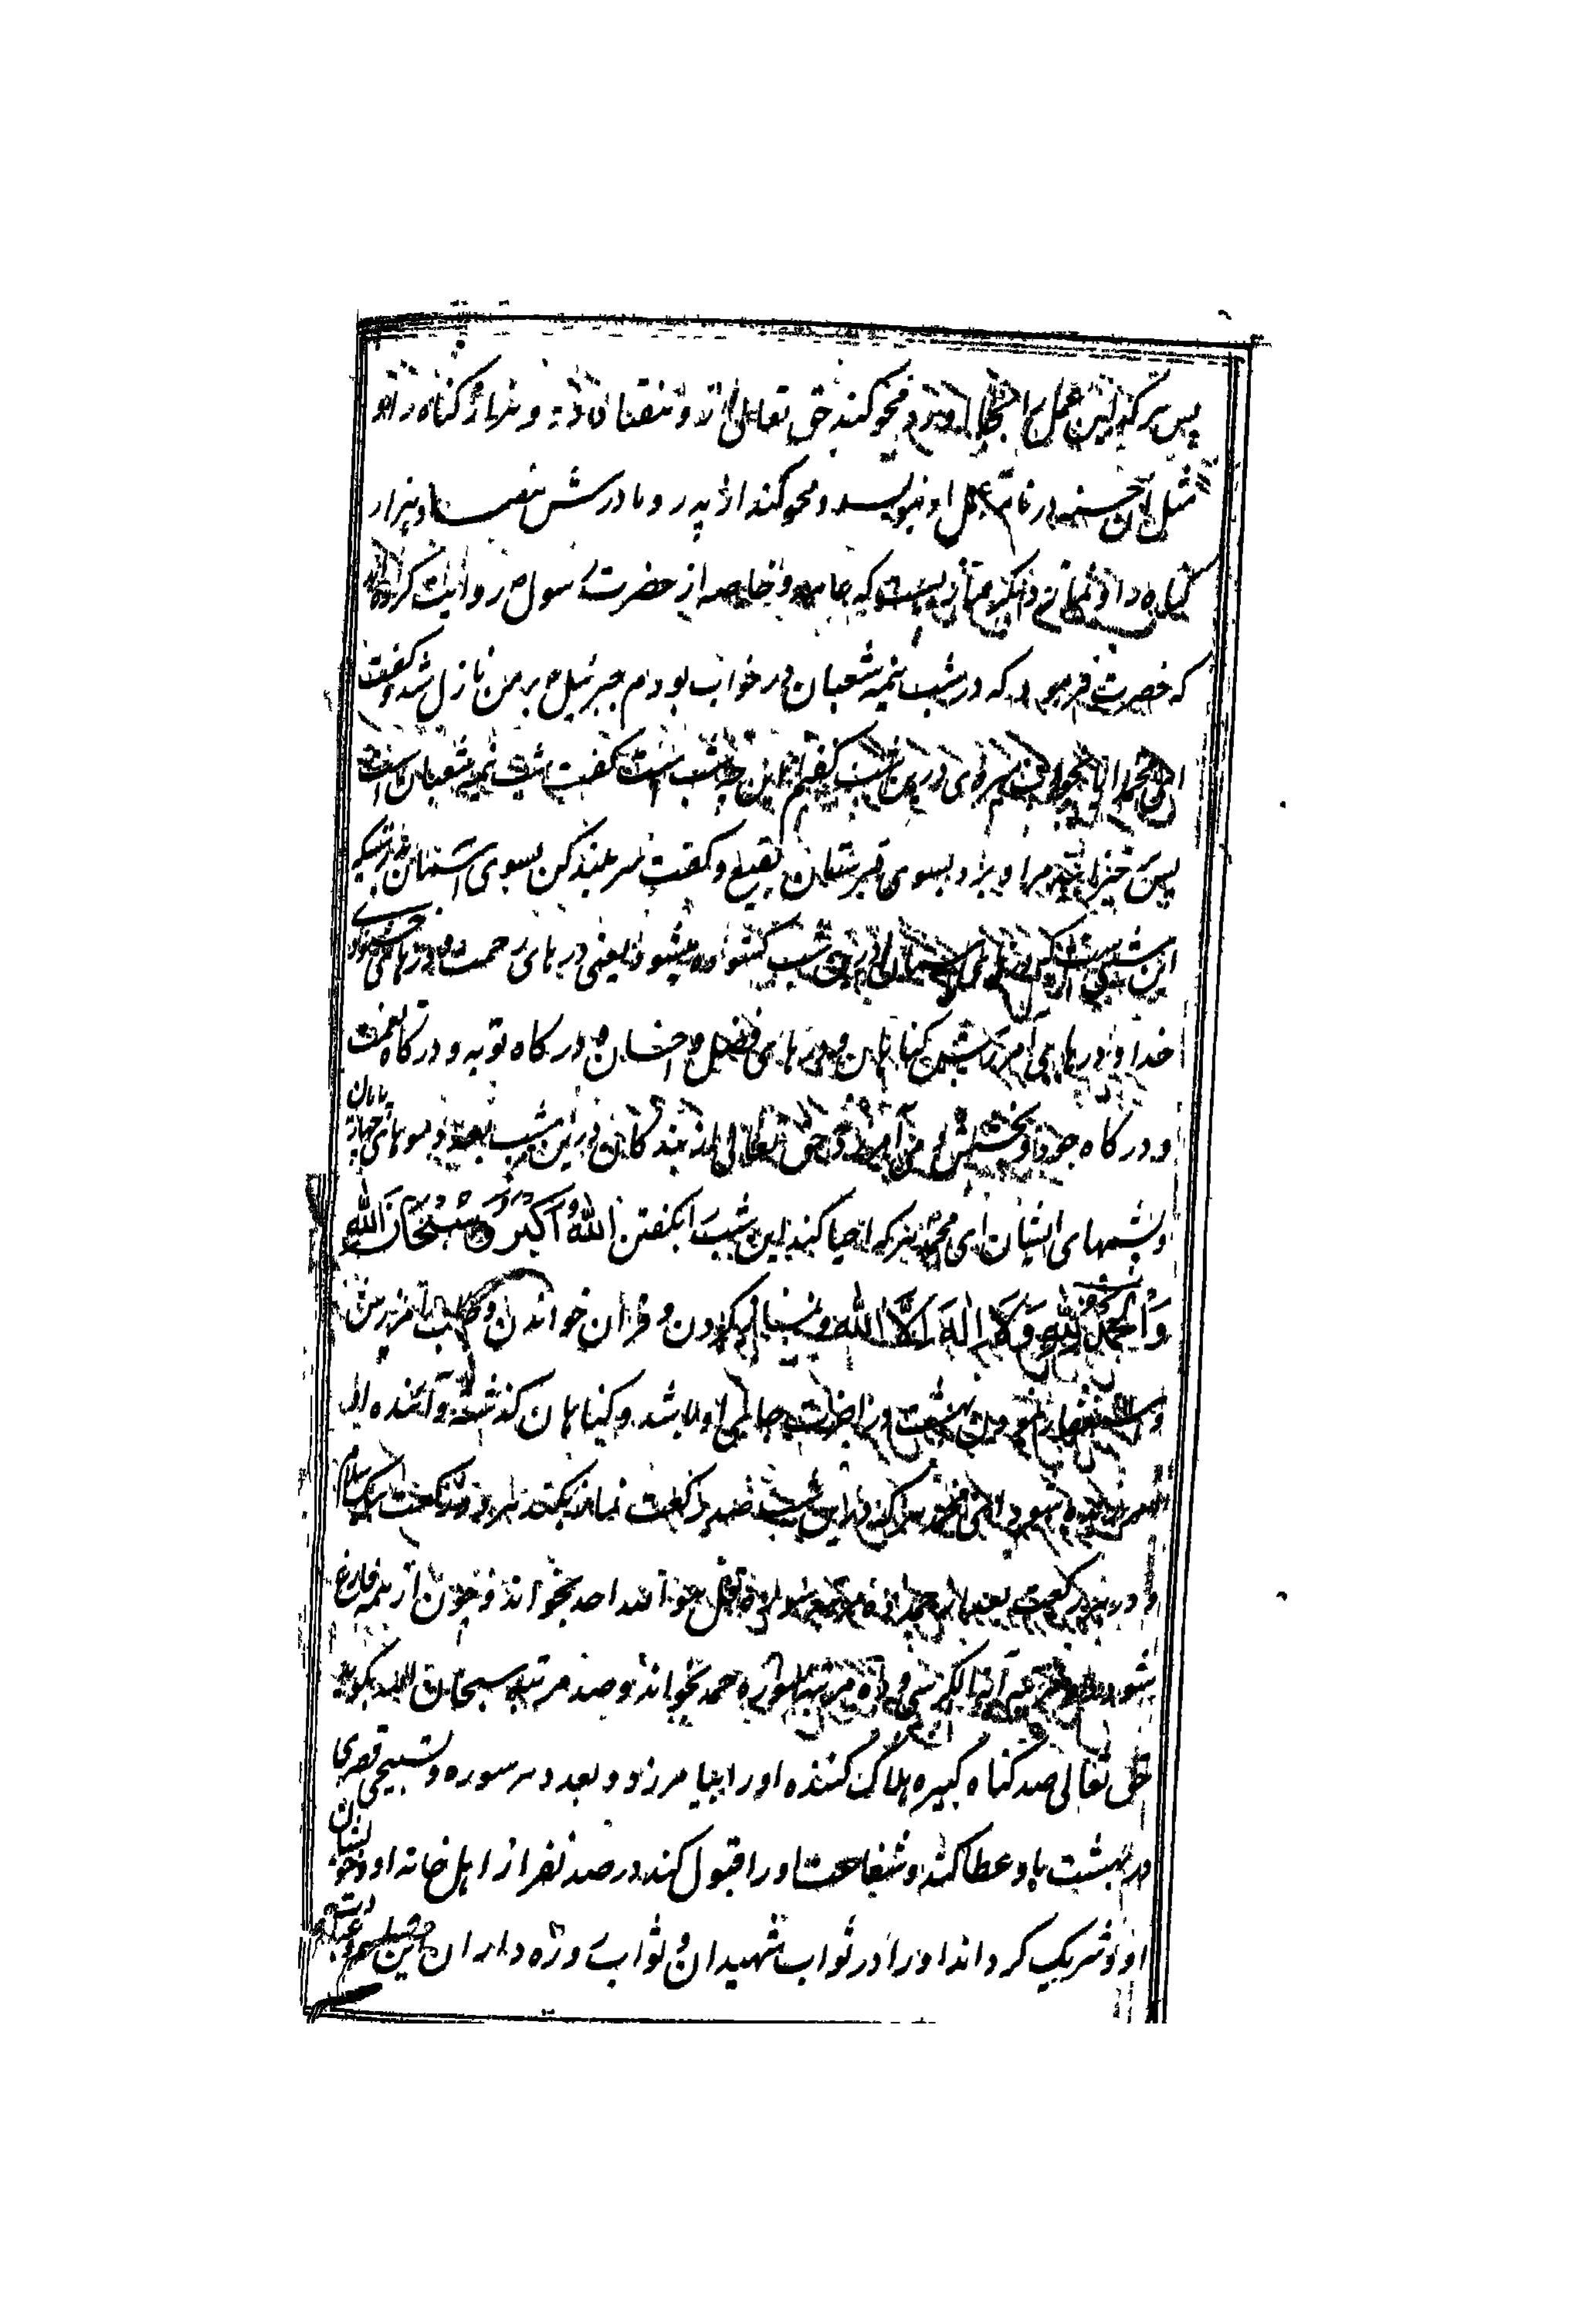 پس هر که این عمل را بجا آورد محو کند حق تعالی از او هفتاد و هزار گناه و از
مثل آن حسنه در نامه عمل او بنویسد و محو کند از پدر و مادرش هفتاد هزار
گناه و که عامه و خاصه از حضرت رسول ص روایت کرده‌اند
که حضرت فرمود که در شب نیمه شعبان در خواب بودم جبرئیل بر من نازل شد و گفت
ای محمد ایا بخواب در این شب گفتم این چه شب است گفت شب نیمه شعبان است
پس خیزانید مرا و برد بسوی قبرستان بقیع و گفت سر بلند کن بسوی آسمان بدرستیکه
این شبی است که درهای آسمان در این شب گشوده میشود یعنی درهای رحمت و درهای خوشنودی
خدا و درهای آمرزش گناهان و درهای فضل و احسان و درگاه توبه و درگاه نعمت
و درگاه جود و بخشش می‌آمرزد حق تعالی از بندگان در این شب بعدد موهای چهارپایان
و پشمهای ایشان ای محمد هر که احیا کند این شب را بگفتن اللهُ اَکبَر وَ سُبحَانَ الله
وَ الحَمدُ لِلّهِ وَ لَا اِلهَ اِلَّا الله و نماز کردن و قرآن خواندن و طلب آمرزش
و استغفار نمودن بهشت جای او باشد و گناهان گذشته و آئنده او
آمرزیده شود ای محمد هر که در این شب صد رکعت نماز بکند هر دو رکعت بیک سلام
و در هر رکعت بعد از حمد ده مرتبه سوره قل هو الله احد بخواند و چون از همه فارغ
شود ده مرتبه آیة الکرسی و ده مرتبه سوره حمد بخواند و صد مرتبه سبحان الله بگوید
حق تعالی صد گناه کبیره هلاک کننده او را بیامرزد و بعدد هر سوره و تسبیحی قصری
در بهشت باو عطا کند و شفاعت او را قبول کند در صد نفر از اهل خانه او و خویشان
او و شریک گرداند او را در ثواب شهیدان و ثواب روزه داران این